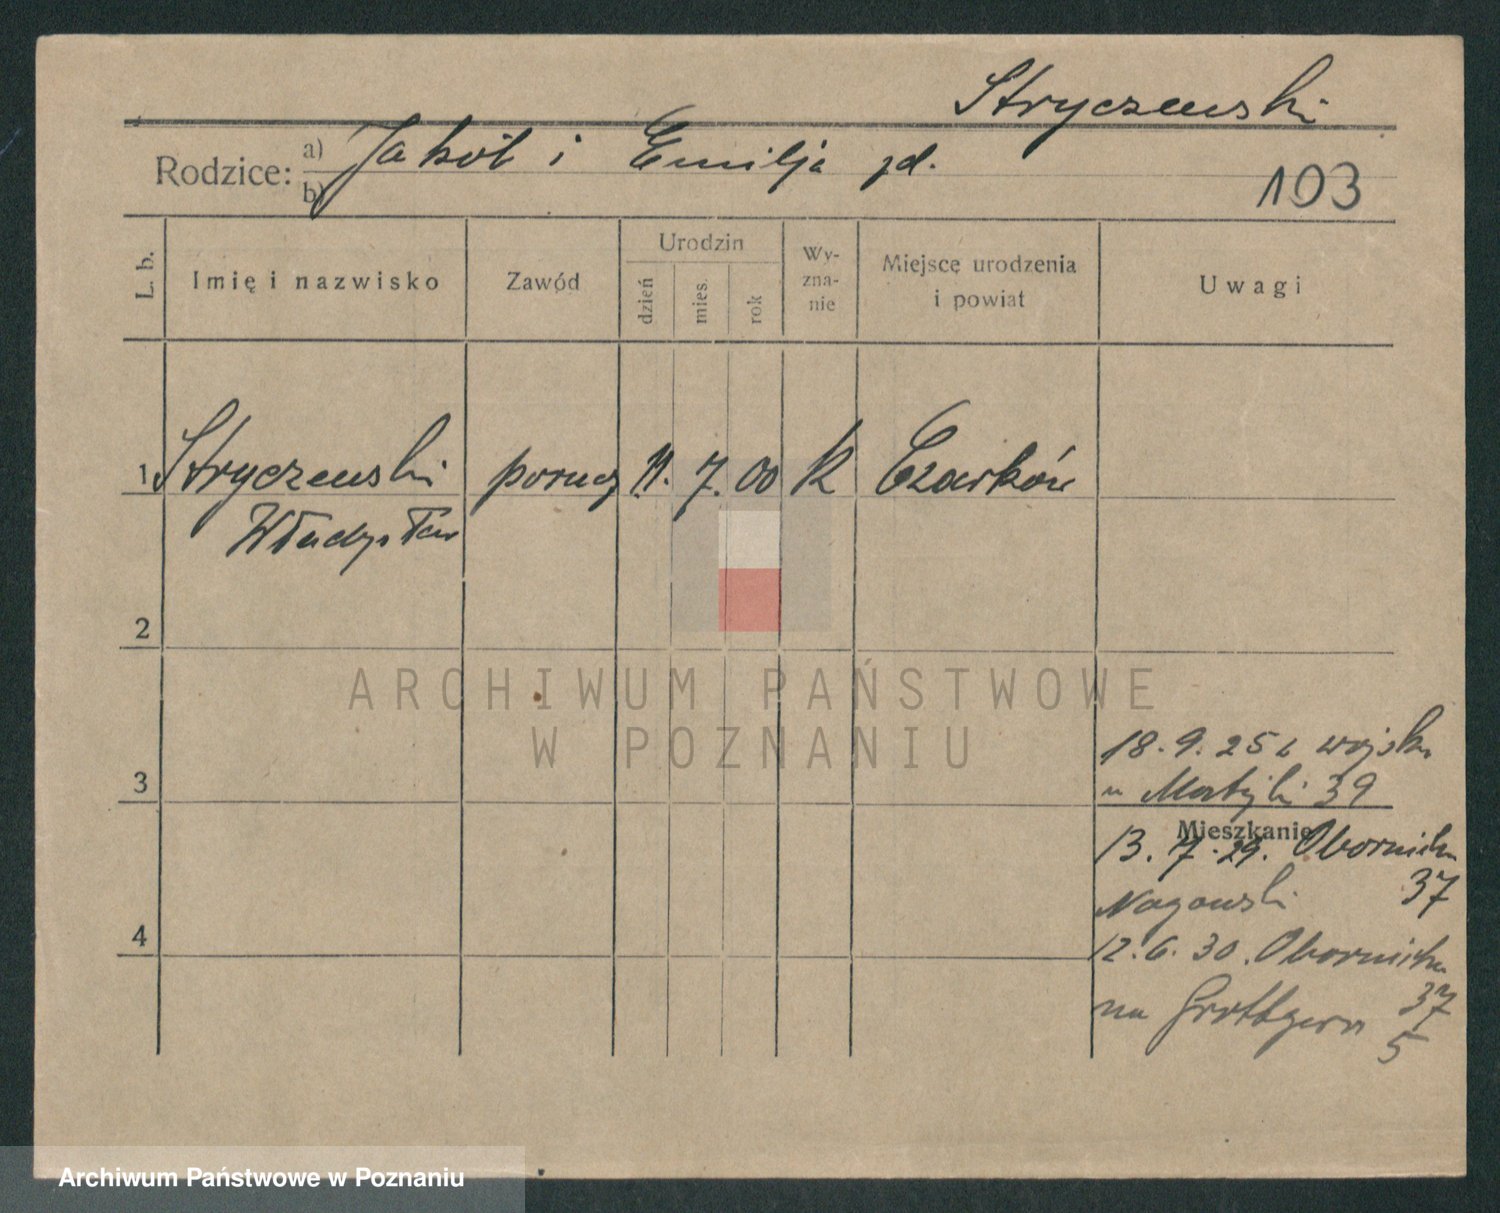 Stryczewski
Rodzice: a) Jakób i Emilja zd.
b)
103
L. b.
Imię i nazwisko
Zawód
Urodzin
dzień
mies.
rok
Wy-
zna-
nie
Miejsce urodzenia
i powiat
Uwagi
1 Stryczewski porucz 11. 7. 00 k Czarków
Władysław
2
ARCHIWUM PAŃSTWOWE
W POZNANIU
18. 9. 25 z wojska
3
39
Mieszkanie
13. 7. 29. Obornicka
37
4
12. 6. 30. Obornicka
37
na Grottgera
5
Archiwum Państwowe w Poznaniu